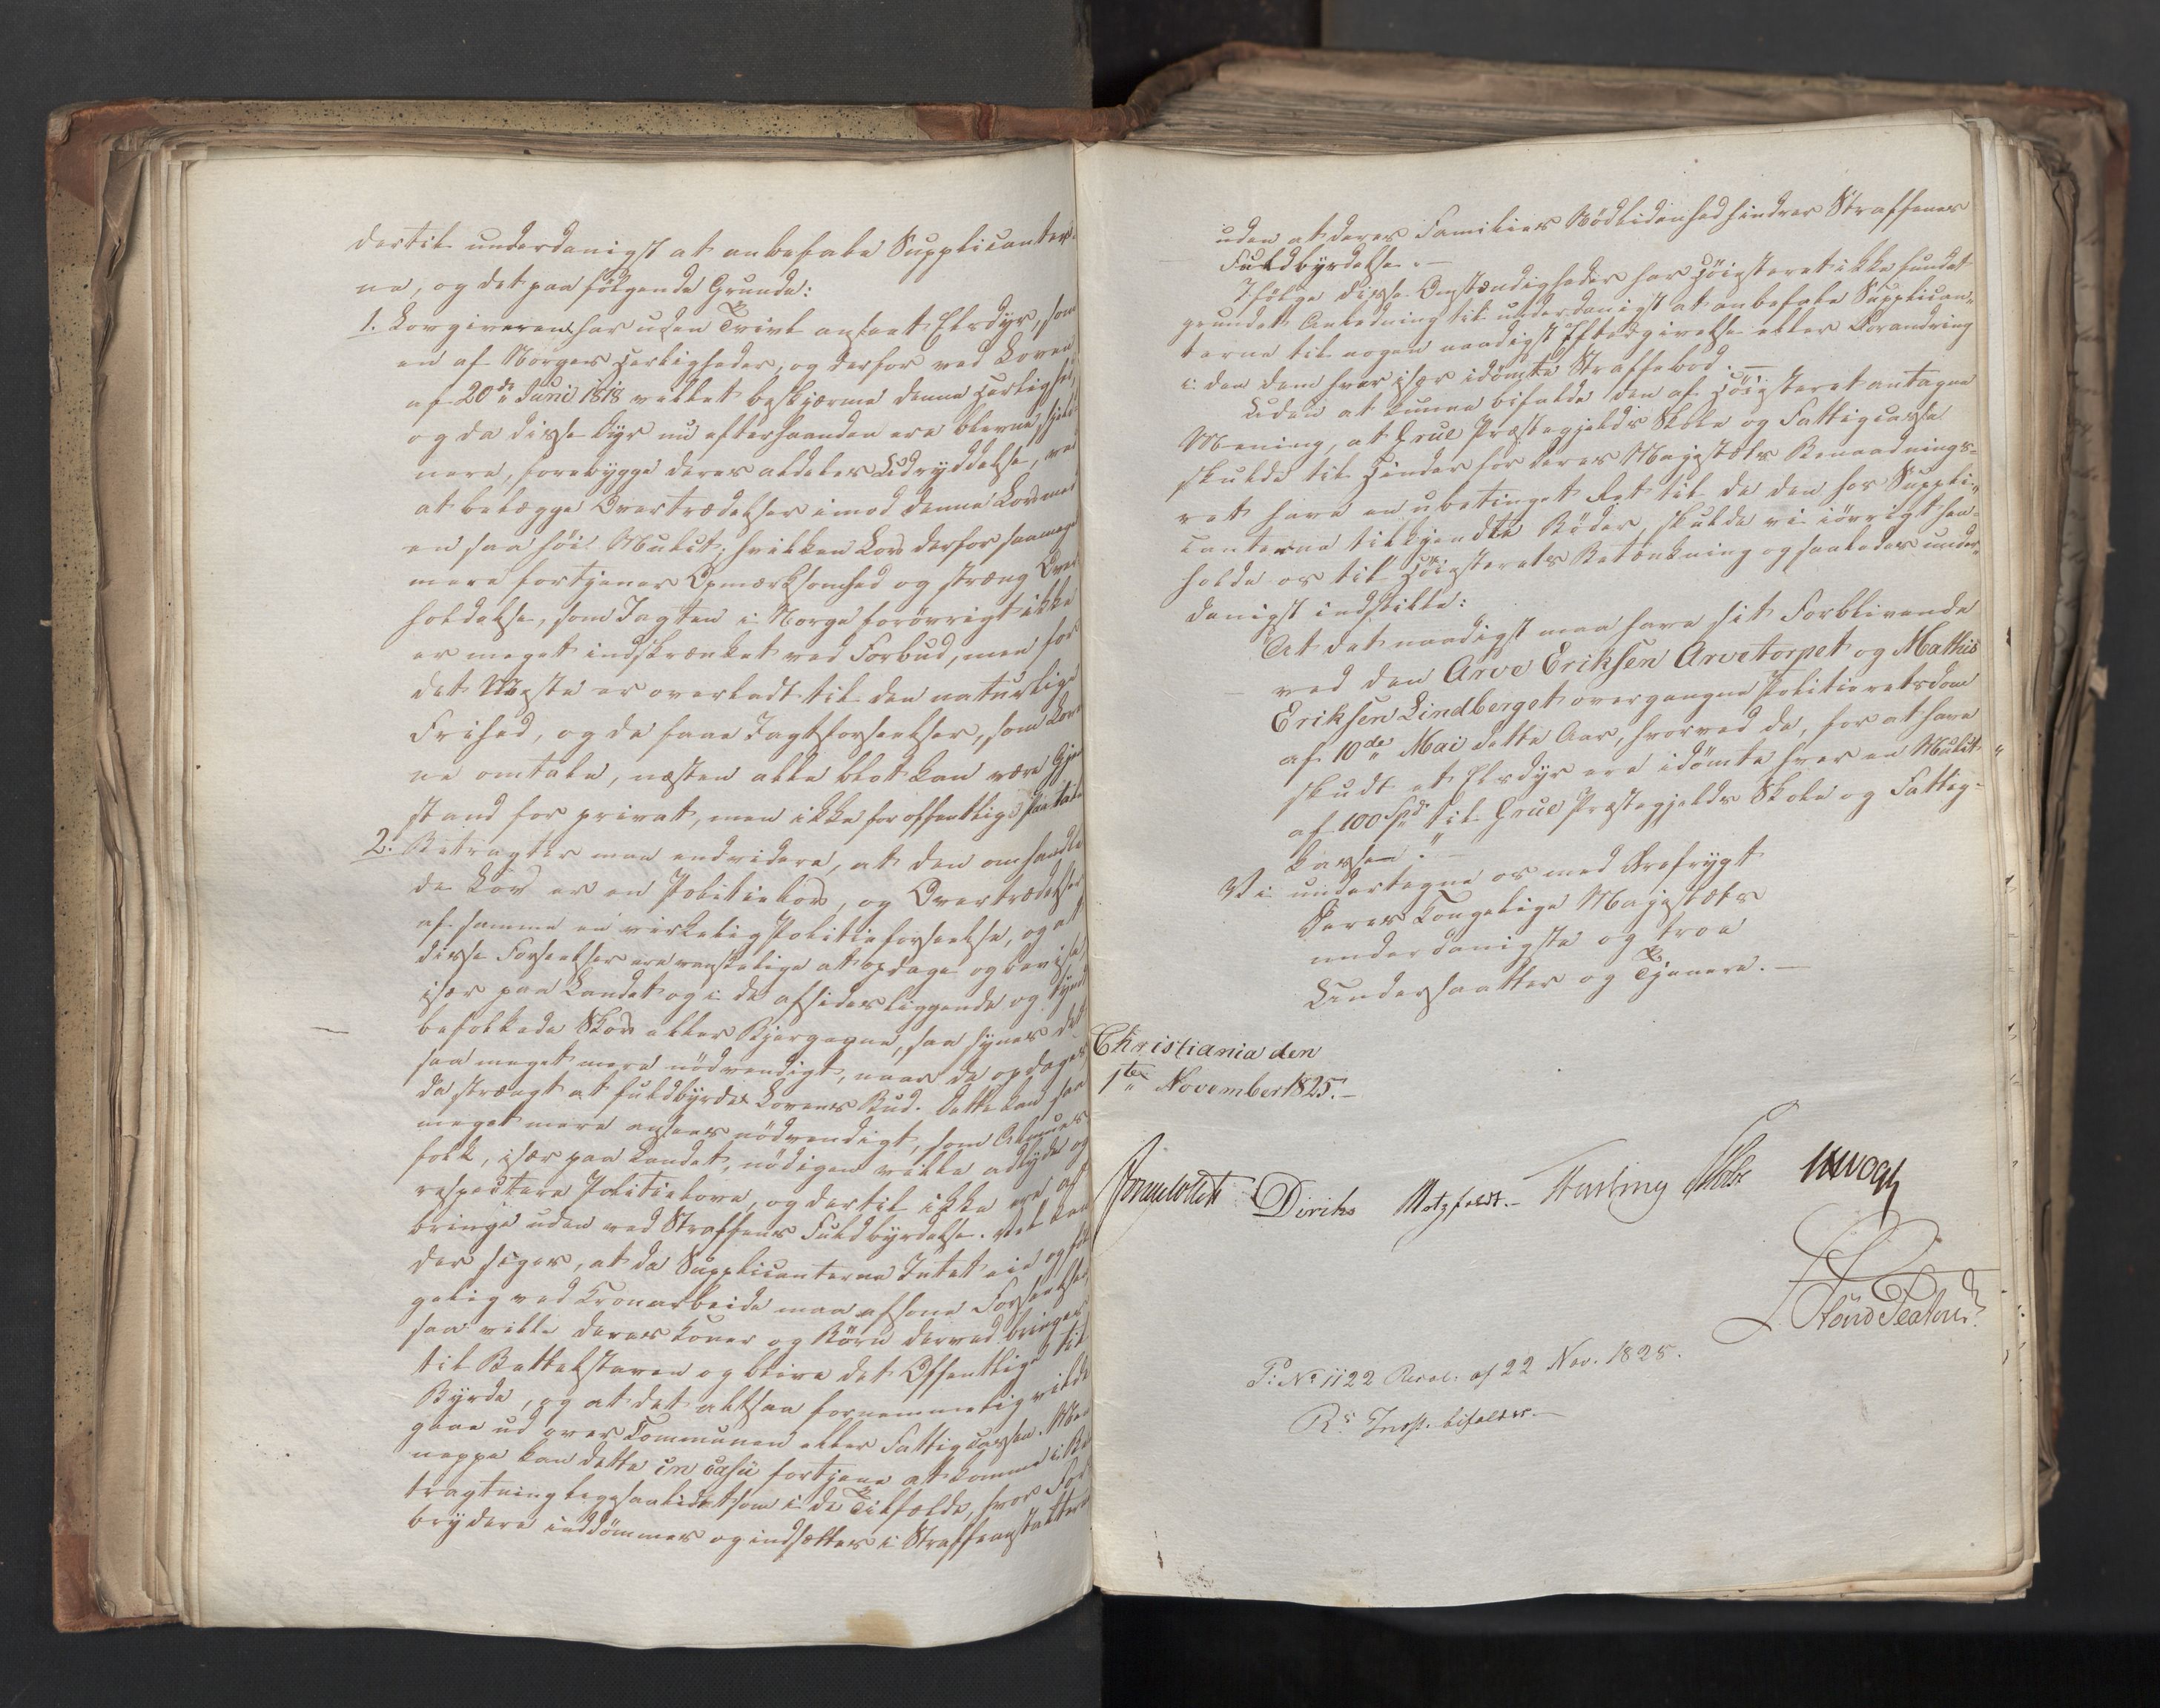 dertil underdanigst at anbefale Supplicanter-
ne, og det paa følgende Grunde:
1. Lovgiveren har uden Tvivl anseet Elsdyr, som
en af Norges Herligheder, og derfor ved Loven
af 20de Juni 1818 villet beskjærme denne Herlighed,
og da disse Dyr nu efterhaanden ere blevne sjeld-
nere, forebygge deres aldeles Udryddelse, ved
at belægge Overtrædelser imod denne Lov med
en saa høi Mulct; hvilken Lov derfor saameget
mere fortjener Opmærksomhed og stræng Over-
holdelse, som Jagten i Norge forøvrigt ikke
er meget indskrænket ved Forbud, men for
det Meste er overladt til den naturlige
Frihed, og de faae Jagtforseelser, som Love-
ne omtale, næsten alle blot kan være Gjen-
stand for privat, men ikke for offentlig Paatale
2. Betragter man endvidere, at den omhandle-
de Lov er en Politielov, og Overtrædelsen
af samme en virkelig Politieforseelse, og at
disse Forseelser ere vanskelige at opdage og bevise,
især paa Landet og i de afsidesliggende og tyndt
befolkede Skov eller Bjergegne, saa synes det
saa meget mere nødvendigt, naar de opdages
da strængt at fuldbyrde Lovens Bud. Dette kan saa
meget mere ansees nødvendigt, som Almues
folk, især paa Landet, nødigen ville adlyde og
respectere Politielove, og dertil ikke ere at
bringe uden ved Straffens Fuldbyrdelse. Vel kan
der siges, at da Supplicanterne Intet eie og føl-
gelig ved Tronarbeide maa afsone Forseelsen,
saa ville deres Koner og Børn derved bringes
til Bettelstaven og blive det Offentlige til
Byrde, og at det altsaa fornemmelig vilde
gaae ud over Communen eller Fattigcassen. Men
neppe kan dette in casu fortjene at komme i Be-
tragtning ligesaalidet som i de Tilfælde, hvor For-
brydere inddømmes og indsættes i Straffeanstalterne
uden at deres Familiers Nødlidenhed hindrer Straffenes
Fuldbyrdelse. —
Ifølge disse Omstændigheder har Høiesteret ikke fundet
grundet Anledning til underdanigst at anbefale Supplican-
terne til nogen naadigst Eftergivelse eller Forandring
i den dem hver især idømte Straffebod. —
Uden at kunne bifalde den af Høiesteret antagne
Mening, at Grue Præstegjelds Skole og Fattigcasse
skulde til Hinder for Deres Majestæts Benaadnings-
ret have en ubetinget Ret til de den hos Suppli-
canterne tilkjendte Bøder, skulde vi iøvrigt hen-
holde os til Høiesterets Betænkning og saaledes under-
danigst indstille:
At det naadigst maa have sit Forblivende
ved den Arve Eriksen Arvetorpet og Mathis
Eriksen Lindberget overgangne Politieretsdom
af 10de Mai dette Aar, hvorved de, for at have
skudt et Elsdyr ere idømte hver en Mulct
af 100 Spd til Grue Præstegjelds Skole og Fattig-
kasse. —
Vi undertegne os med Ærefrygt
Deres Kongelige Majestæts
underdanigste og troe
Undersaatter og Tjenere. —
Christiania den
1ste November 1825. —
Diriks Motzfeldt. Krog
P: No 1122 Resol. af 22 Nov. 1825.
Rs Indst. bifaldes. —